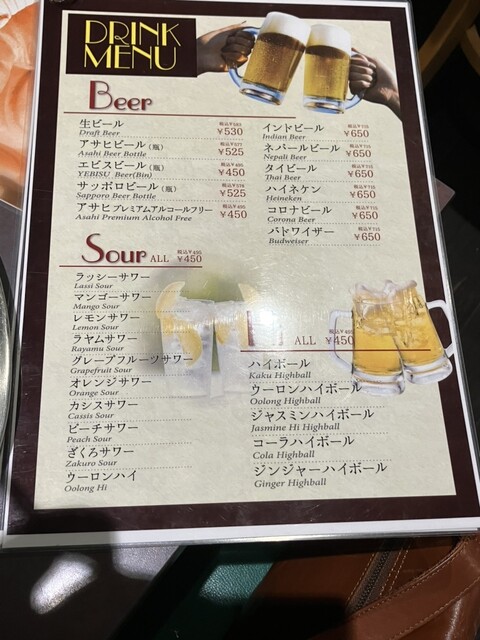 DRINK
MENU
Beer
生ビール
Draft Beer
¥530
アサヒビール(瓶)
Asahi Beer Bottle
税込¥577
¥525
エビスビール(瓶)
YEBISU Beer(Bin)
税込¥495
¥450
サッポロビール(瓶)
Sapporo Beer Bottle
¥525
アサヒプレミアムアルコールフリー
Asahi Premium Alcohol Free
税込¥495
¥450
インドビール
Indian Beer
税込¥715
¥650
ネパールビール
Nepali Beer
税込¥715
¥650
タイビール
Thai Beer
税込¥715
¥650
ハイネケン
Heineken
税込¥715
¥650
コロナビール
Corona Beer
税込¥715
¥650
バドワイザー
Budweiser
税込¥715
¥650
Sour ALL
税込¥495
¥450
ラッシーサワー
Lassi Sour
マンゴーサワー
Mango Sour
レモンサワー
Lemon Sour
ラヤムサワー
Rayamu Sour
グレープフルーツサワー
Grapefruit Sour
オレンジサワー
Orange Sour
カシスサワー
Cassis Sour
ピーチサワー
Peach Sour
ざくろサワー
Zakuro Sour
ウーロンハイ
Oolong Hi
ALL
税込¥495
¥450
ハイボール
Kaku Highball
ウーロンハイボール
Oolong Highball
ジャスミンハイボール
Jasmine Hi Highball
コーラハイボール
Cola Highball
ジンジャーハイボール
Ginger Highball